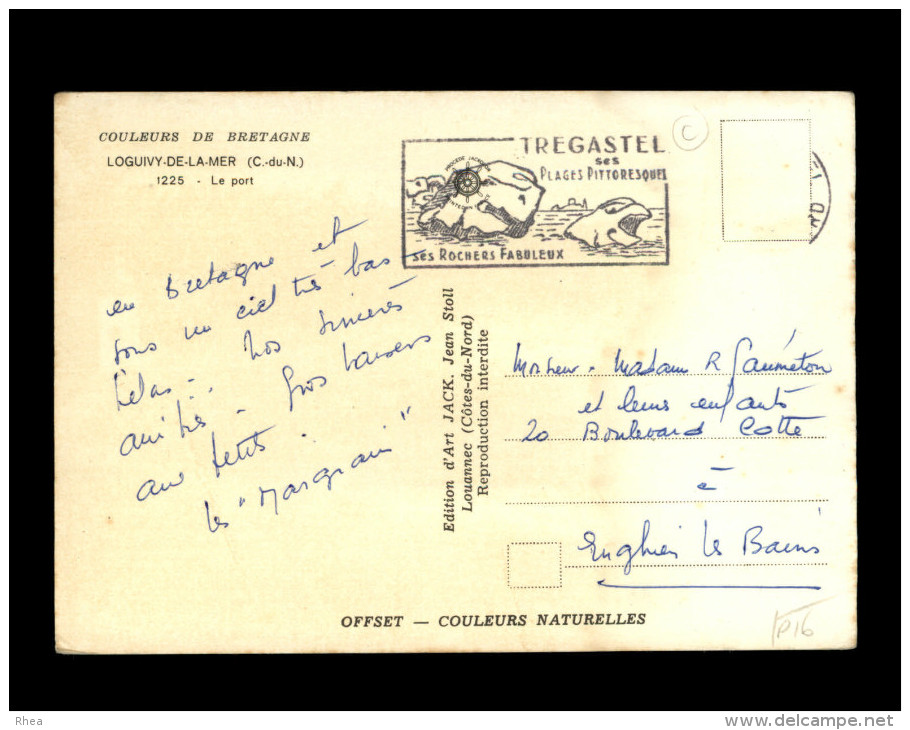 COULEURS DE BRETAGNE
LOGUIVY-DE-LA-MER (C.-du-N.)
1225 - Le port
TREGASTEL
ses
PLAGES PITTORESQUES
SES ROCHERS FABULEUX
C
en Bretagne et
sous un ciel très bas
hélas... Nos sincères
amitiés - Gros baisers
aux petits.
les "Margrain"
Edition d'Art JACK. Jean Stoll
Louannec (Côtes-du-Nord)
Reproduction interdite
Monsieur - Madame R
et leurs enfants
20 Boulevard Cotte
à
Enghien les Bains
OFFSET — COULEURS NATURELLES
P16
Rhea
www.delcampe.net